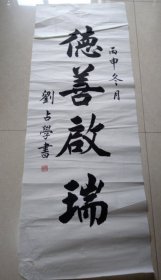 德善啟瑞
丙申冬月
劉占學書